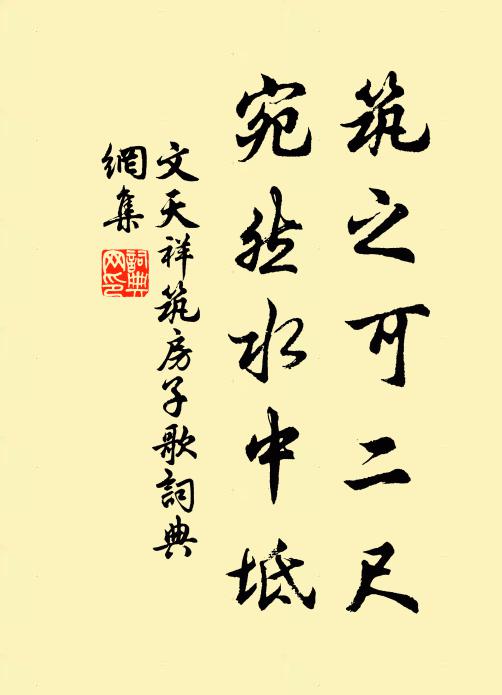 筑之可二尺
宛然水中坻
文天祥筑房子歌詞典
網集
詞典
网印